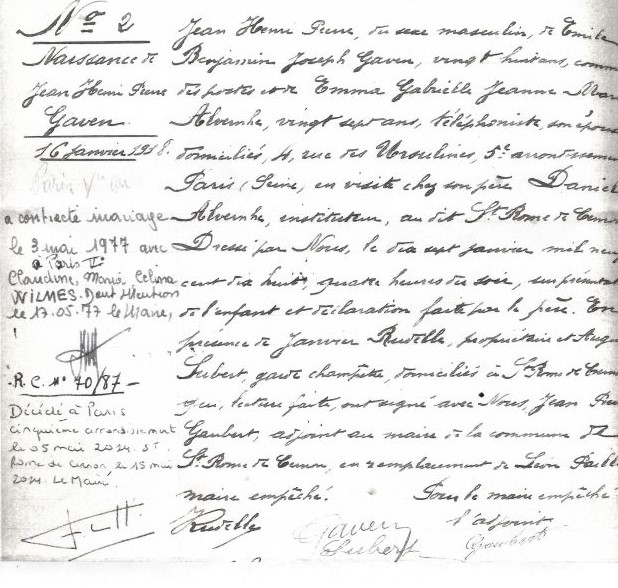 No 2
Naissance de
Jean Henri Pierre
Gaven
16 Janvier 1918.
a contracté mariage
le 3 mai 1977 avec
à Paris V
Claudine, Marie Celina
WILMES. Dont Mention
le 17.05.77 le Maire,
R.C. No 70/87
Décédé à Paris
cinquième arrondissement
le 05 mai 2014. St
Rome de Cernon, le 15 mai
2014. Le Maire
Jean Henri Pierre, du sexe masculin, de Emile
Benjamin Joseph Gaven, vingt huit ans, comm
des postes et de Emma Gabrielle Jeanne
Alvernhe, vingt sept ans, téléphoniste, son épouse
domiciliés, 4, rue des Ursulines, 5e arrondissemen
Paris, (Seine, en visite chez son père Daniel
Alvernhe, instituteur, au dit St Rome de Cernon
Dressé par Nous, le dix sept janvier mil neuf
cent dix huit, quatre heures du soir, sur présentat
de l'enfant et déclaration faite par le père. En
présence de Janvier Rudelle, propriétaire et
Subert, garde champêtre, domiciliés à St Rome de Cernon
qui, lecture faite, ont signé avec Nous, Jean
Gaubert, adjoint au maire de la commune de
St Rome de Cernon, en remplacement de Léon
maire empêché. Pour le maire empêché
Rudelle Gaven l'adjoint
Subert Gaubert